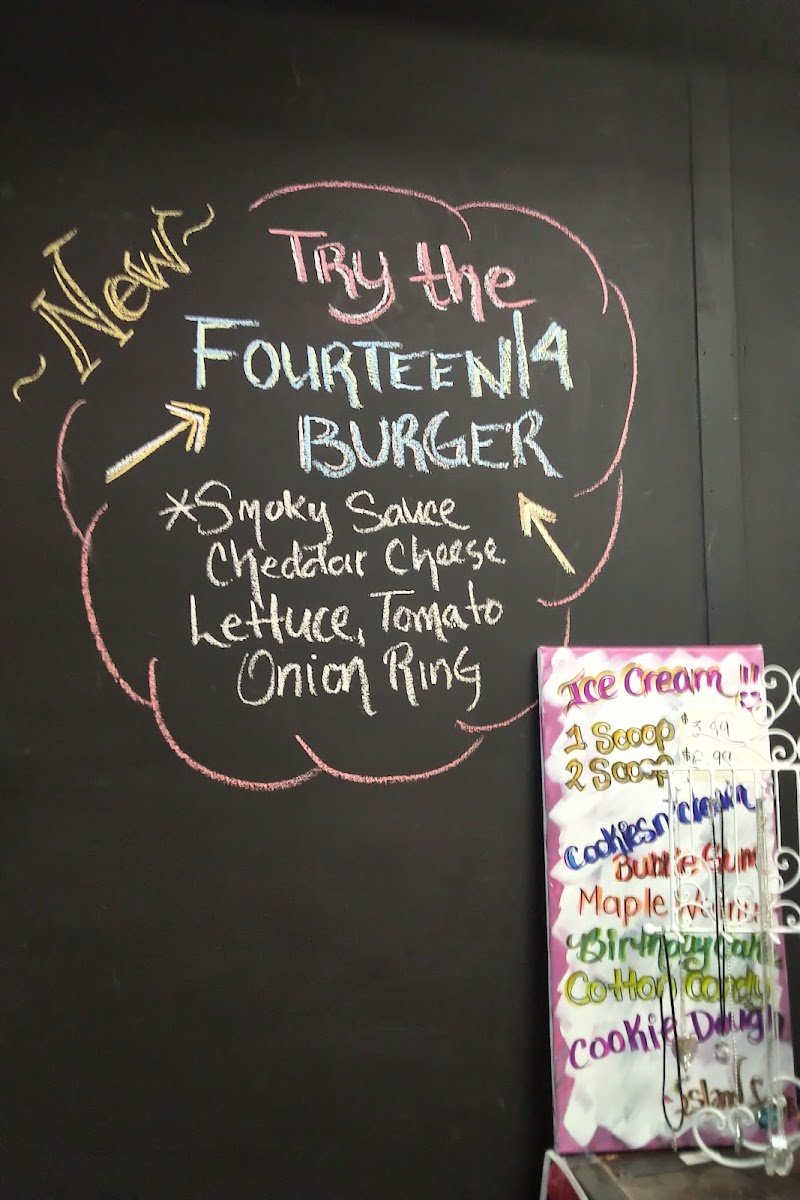 ~New~
Try the
FOURTEEN|4
BURGER
*Smoky Sauce
Cheddar Cheese
Lettuce, Tomato
Onion Ring
Ice Cream!!
1 Scoop $3.49
2 Scoop
Cookies n' cream
Bubble Gum
Maple Walnut
Birthday Cake
Cotton Candy
Cookie Dough
Island